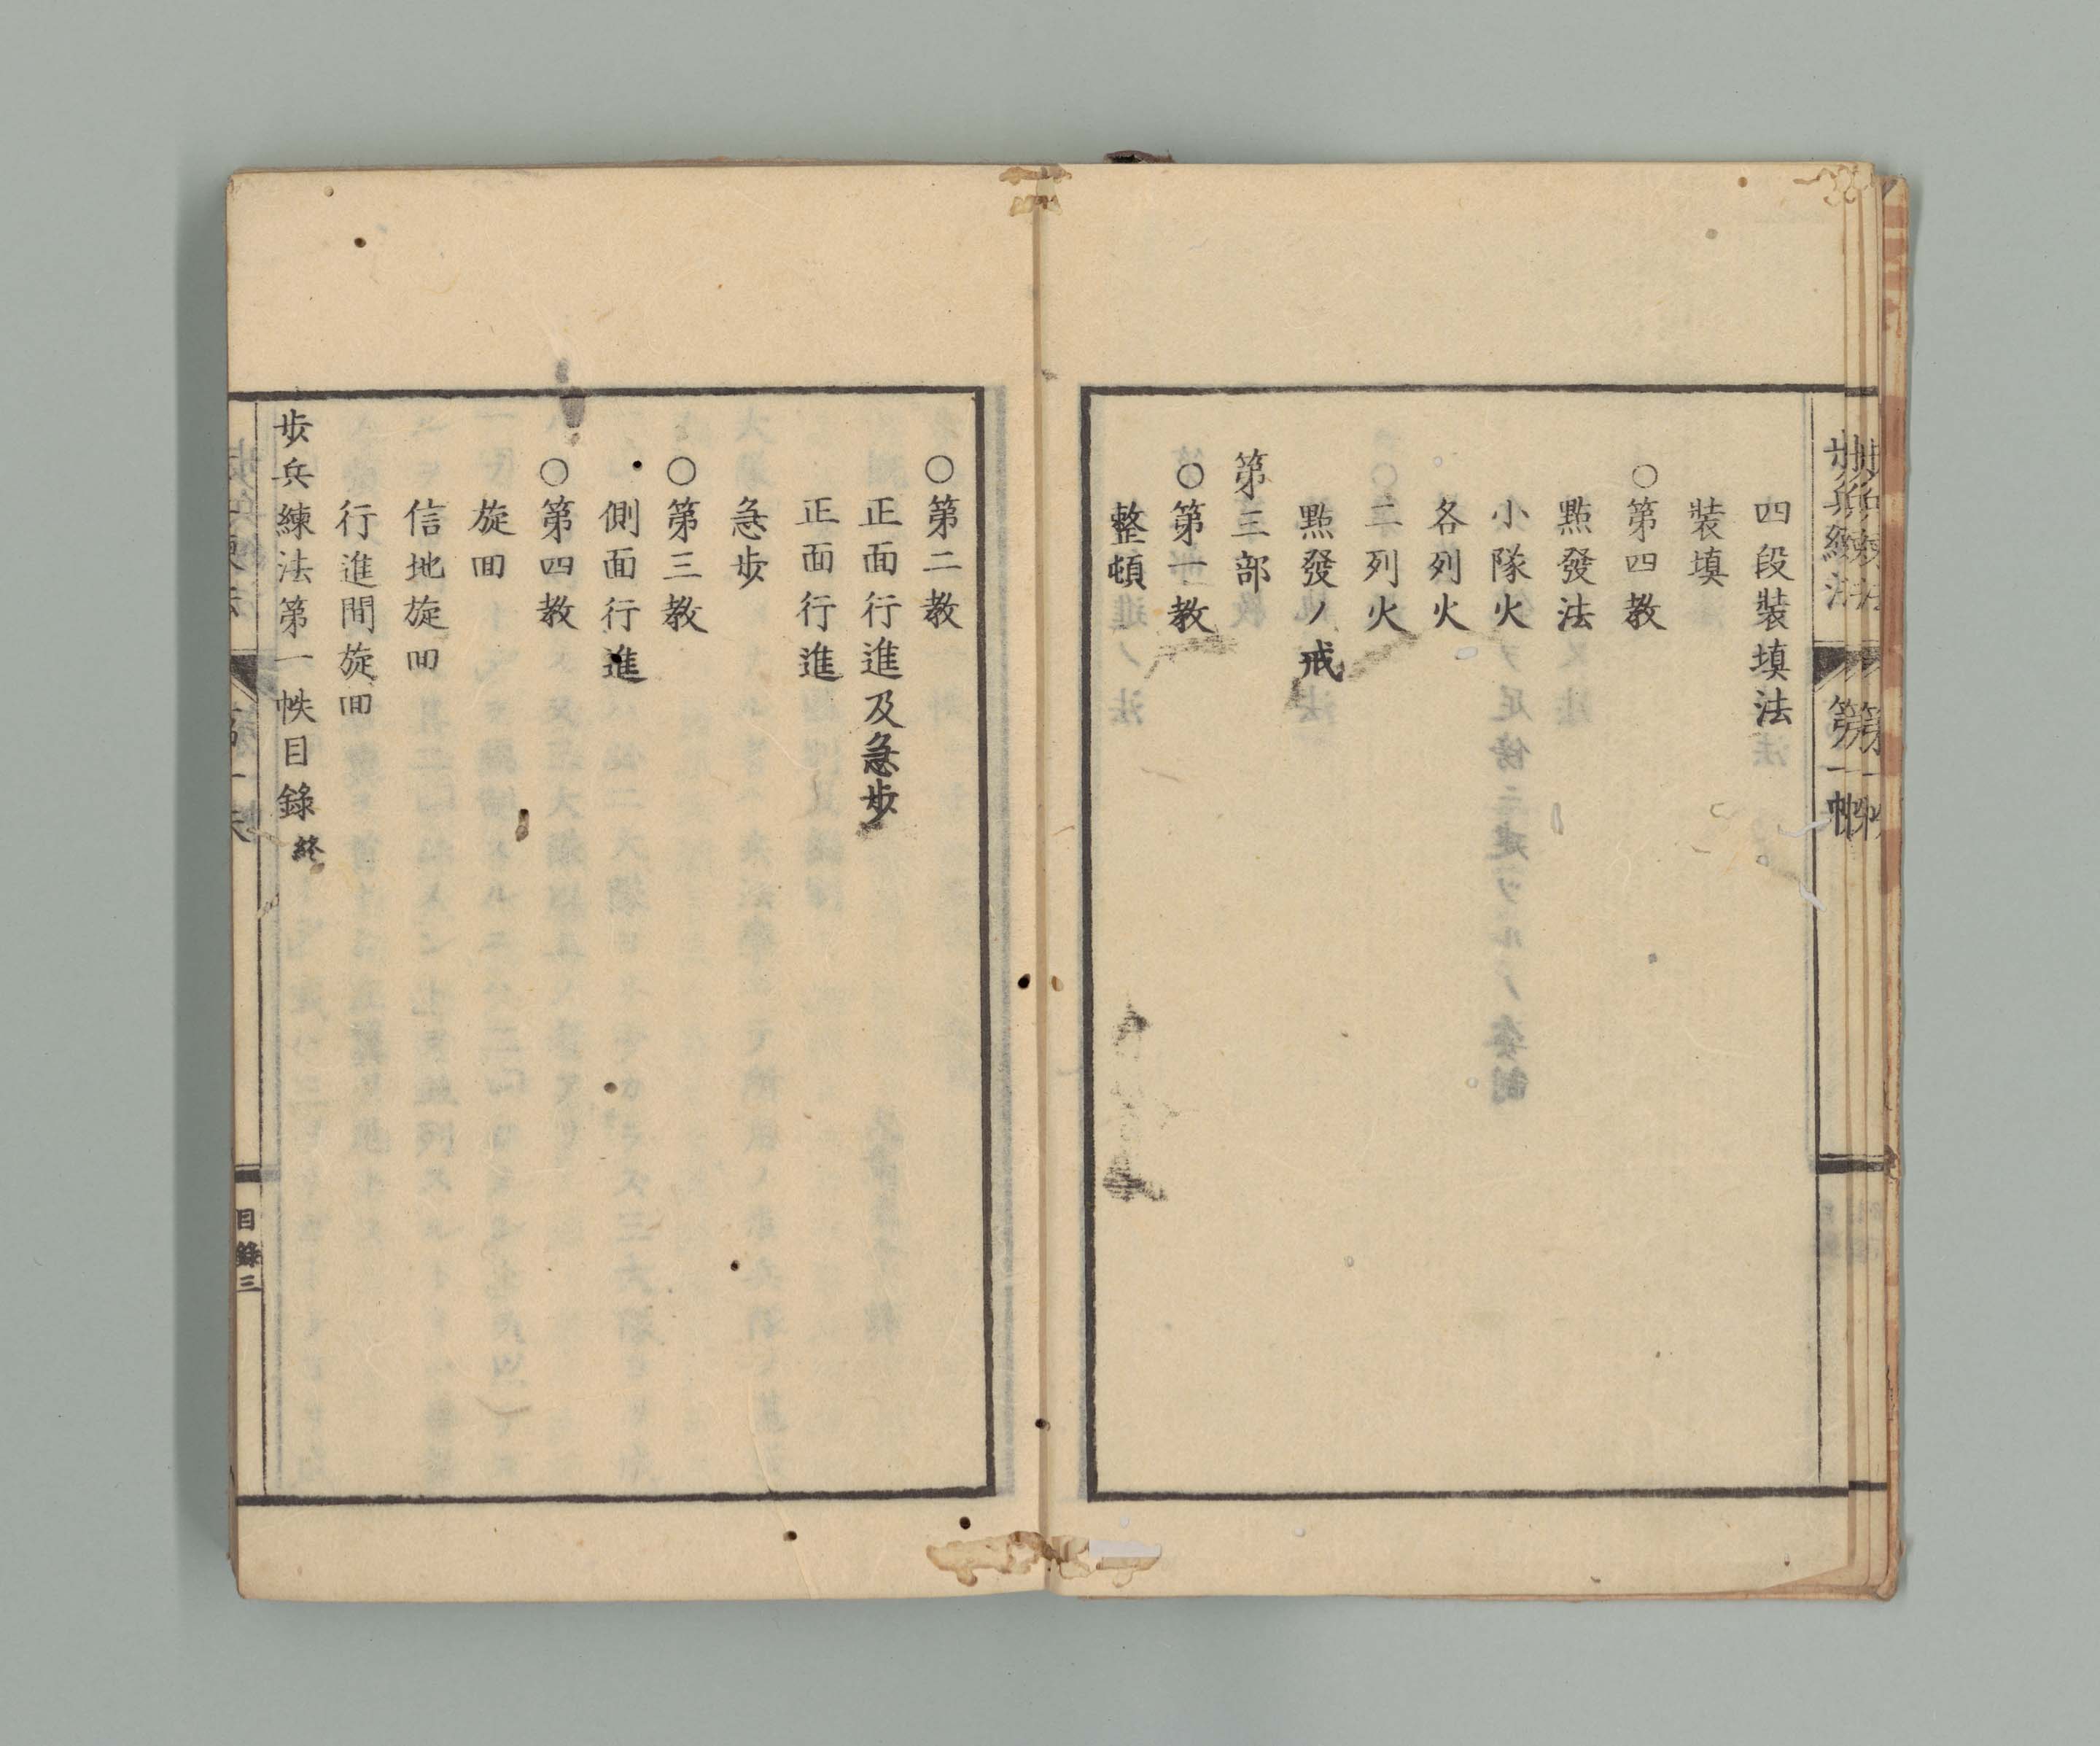 歩兵練法
第一帙
四段裝填法
裝填
○第四教
點發法
小隊火
各列火
二列火
點發ノ戒
第三部
○第一教
整頓
○第二教
正面行進及急歩
正面行進
急歩
○第三教
側面行進
○第四教
旋回
信地旋回
行進間旋回
歩兵練法第一帙目錄終
目錄三